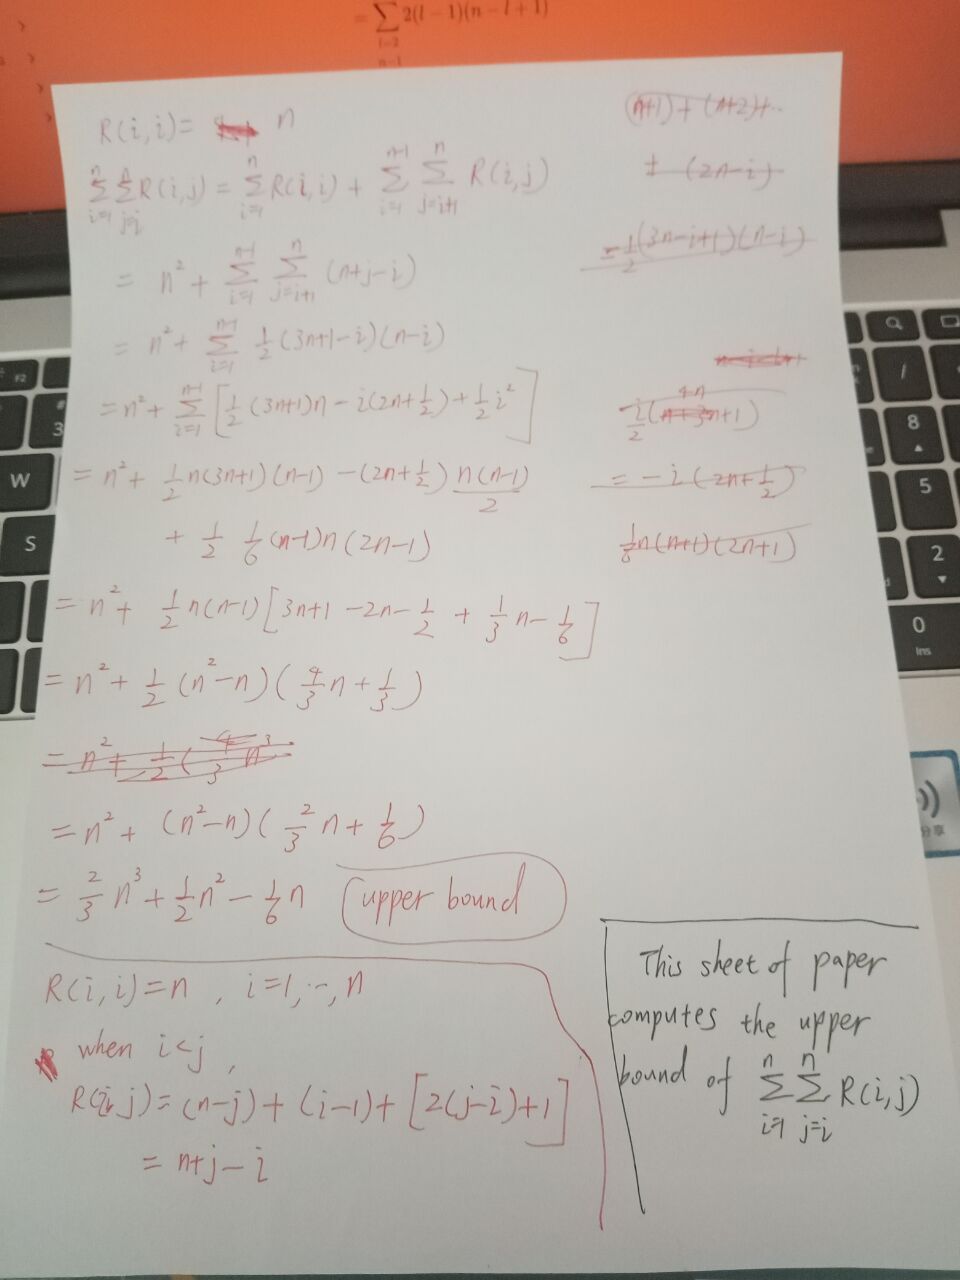 = ∑ 2(l − 1)(n − l + 1)
l=2
n−1
R(i,i)= n
∑_{i=1}^{n} ∑_{j=i}^{n} R(i,j) = ∑_{i=1}^{n} R(i,i) + ∑_{i=1}^{n-1} ∑_{j=i+1}^{n} R(i,j)
= n² + ∑_{i=1}^{n-1} ∑_{j=i+1}^{n} (n+j-i)
= n² + ∑_{i=1}^{n-1} 1/2 (3n+1-i)(n-i)
= n² + ∑_{i=1}^{n-1} [1/2 (3n+1)n - i(2n+1/2) + 1/2 i²]
= n² + 1/2 n(3n+1)(n-1) - (2n+1/2) n(n-1)/2
+ 1/2 1/6 (n-1)n(2n-1)
= n² + 1/2 n(n-1)[3n+1 -2n - 1/2 + 1/3 n - 1/6]
= n² + 1/2 (n²-n)(4/3 n + 1/3)
= n² + 1/2 (4/3 n³
= n² + (n²-n)(2/3 n + 1/6)
= 2/3 n³ + 1/2 n² - 1/6 n upper bound
(n+1) + (n+2)+..
+ (2n-i)
= 1/2 (3n-i+1)(n-i)
= -i(2n+1/2)
1/6 n(n+1)(2n+1)
R(i,i)=n , i=1,..,n
when i<j,
R(i,j)= (n-j) + (i-1) + [2(j-i)+1]
= n+j-i
This sheet of paper
computes the upper
bound of ∑_{i=1}^{n} ∑_{j=i}^{n} R(i,j)
F2
3
W
S
/
8
5
2
0
Ins
分享